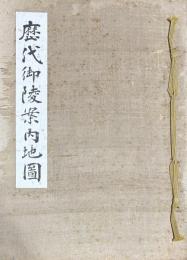 歴代御陵案内地圖